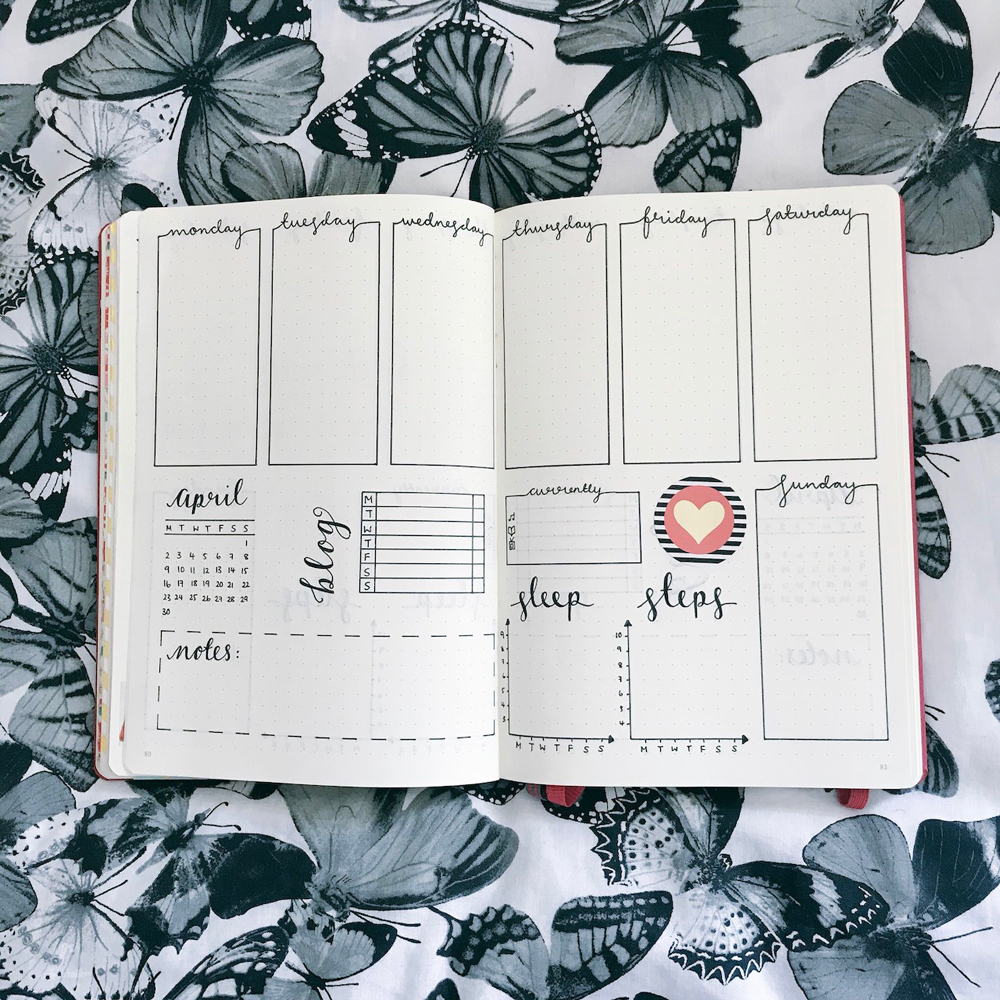 monday
tuesday
wednesday
thursday
friday
saturday
april
M T W T F S S
1
2 3 4 5 6 7 8
9 10 11 12 13 14 15
16 17 18 19 20 21 22
23 24 25 26 27 28 29
30
blog
M
T
W
T
F
S
S
notes:
80
currently
sleep
9
8
7
6
5
4
3
M T W T F S S
steps
10
9
8
7
6
5
4
M T W T F S S
sunday
81